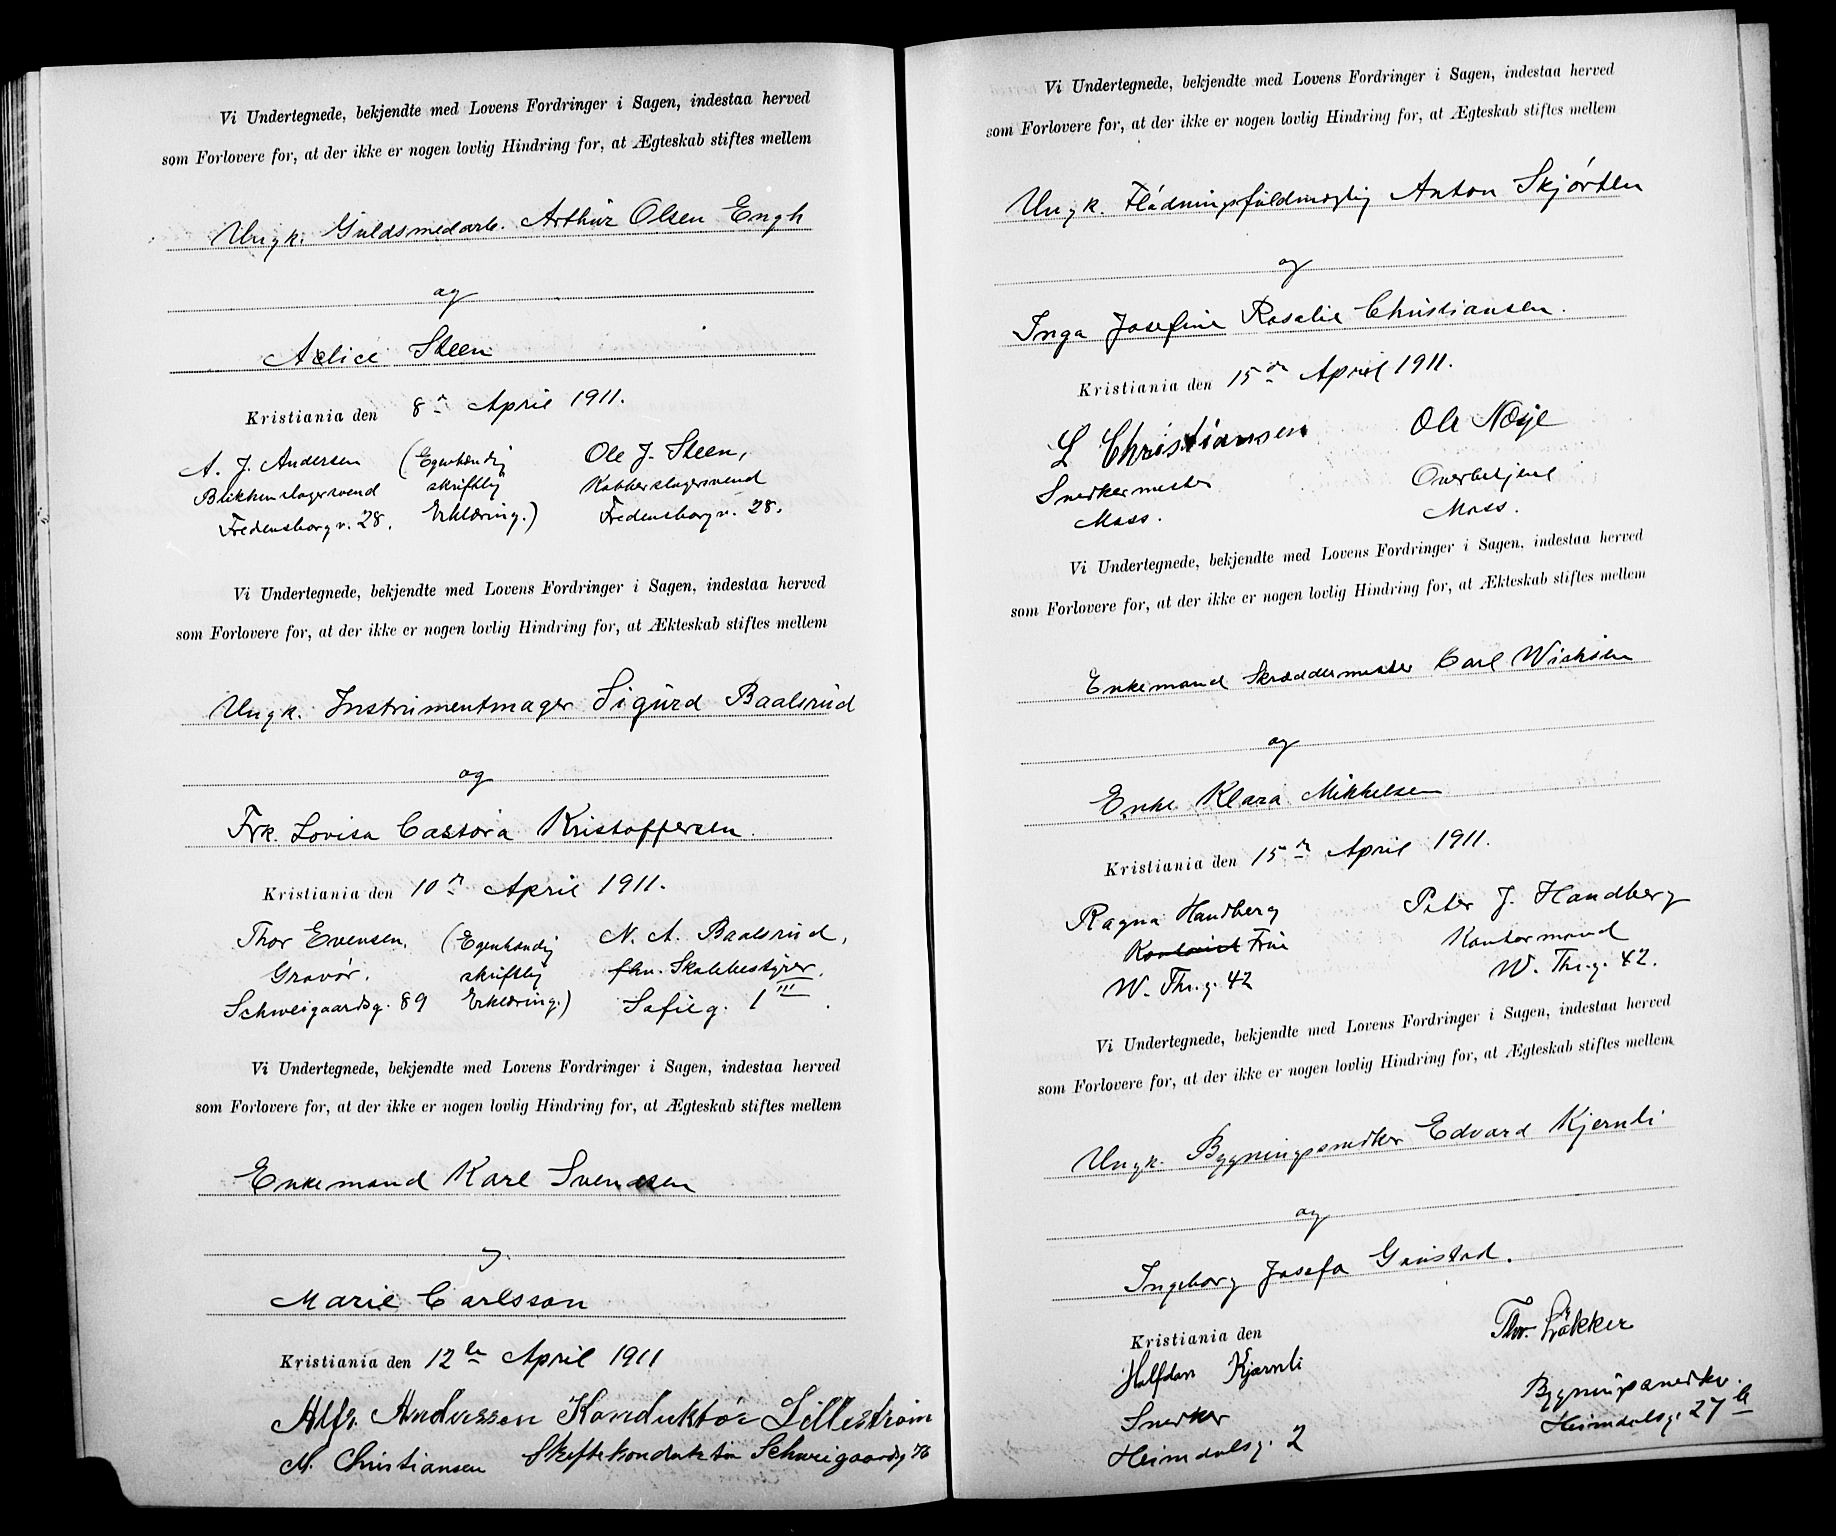 Vi Undertegnede, bekjendte med Lovens Fordringer i Sagen, indestaa herved
som Forlovere for, at der ikke er nogen lovlig Hindring for, at Ægteskab stiftes mellem
Ungk. Guldsmedarb. Arthur Olsen Engh
og
Alice Steen
Kristiania den 8de April 1911.
A. J. Andersen (Egenhændig Ole J. Steen,
Blikkenslagersvend skriftlig Kobberslagersvend
Fredensborgv. 28. Erklæring.) Fredensborgv. 28.
Vi Undertegnede, bekjendte med Lovens Fordringer i Sagen, indestaa herved
som Forlovere for, at der ikke er nogen lovlig Hindring for, at Ækteskab stiftes mellem
Ungk. Instrumentmager Sigurd Baalsrud
og
Frk. Lovisa Castora Kristoffersen.
Kristiania den 10de April 1911.
Thor Evensen. (Egenhændig N. A. Baalsrud,
Gravør. skriftlig fhv. Skolebestyrer.
Schweigaardsg. 89 Erklæring.) Sofieg. 1 III.
Vi Undertegnede, bekjendte med Lovens Fordringer i Sagen, indestaa herved
som Forlovere for, at der ikke er nogen lovlig Hindring for, at Ægteskab stiftes mellem
Enkemand Karl Svendsen
og
Marie Carlsson
Kristiania den 12te April 1911
Alfr. Anderssen Konduktør Lillestrøm
M. Christiansen Skiftekonduktør Schweigaardsg 76
Vi Undertegnede, bekjendte med Lovens Fordringer i Sagen, indestaa herved
som Forlovere for, at der ikke er nogen lovlig Hindring for, at Ægteskab stiftes mellem
Ungk. Anton Skjørten
og
Inga Josefine Rosalie Christiansen.
Kristiania den 15de April 1911.
L Christiansen Ole Næsje
Snekkermester Overbetjent
Moss. Moss.
Vi Undertegnede, bekjendte med Lovens Fordringer i Sagen, indestaa herved
som Forlovere for, at der ikke er nogen lovlig Hindring for, at Ækteskab stiftes mellem
Enkemand Skræddermester Carl
og
Enke Klara Mikkelsen
Kristiania den 15de April 1911.
Ragna Handberg Peter J. Handberg
Frue Kontormand
W. Thr.g. 42 W. Thr.g. 42.
Vi Undertegnede, bekjendte med Lovens Fordringer i Sagen, indestaa herved
som Forlovere for, at der ikke er nogen lovlig Hindring for, at Ægteskab stiftes mellem
Ungk. Bygningssnedker Edvard Kjernli
og
Ingeborg Josefa
Kristiania den Thv. Løkker
Halfdan Kjærnli Bygningssnedker.
Snedker Heimdalsg. 27 b
Heimdalsg. 2